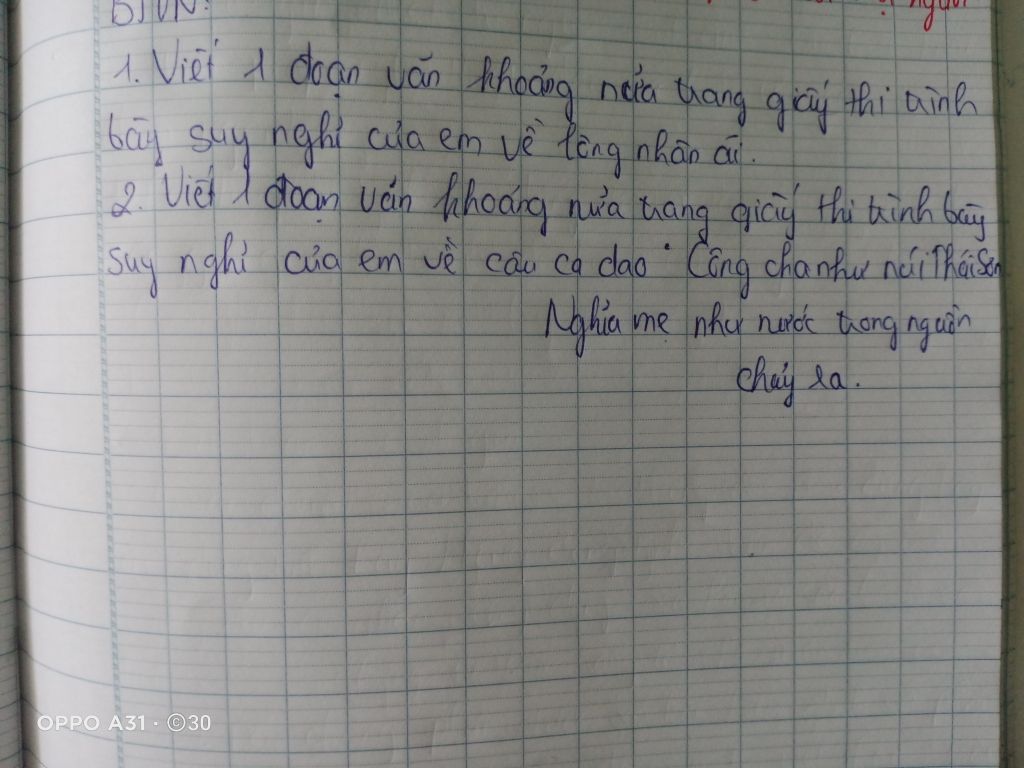 BTVN:
1. Viết 1 đoạn văn khoảng nửa trang giấy thi trình
bày suy nghĩ của em về lòng nhân ái.
2. Viết 1 đoạn văn khoảng nửa trang giấy thi trình bày
suy nghĩ của em về câu ca dao "Công cha như núi Thái Sơn
Nghĩa mẹ như nước trong nguồn
chảy ra.
OPPO A31 · ©30